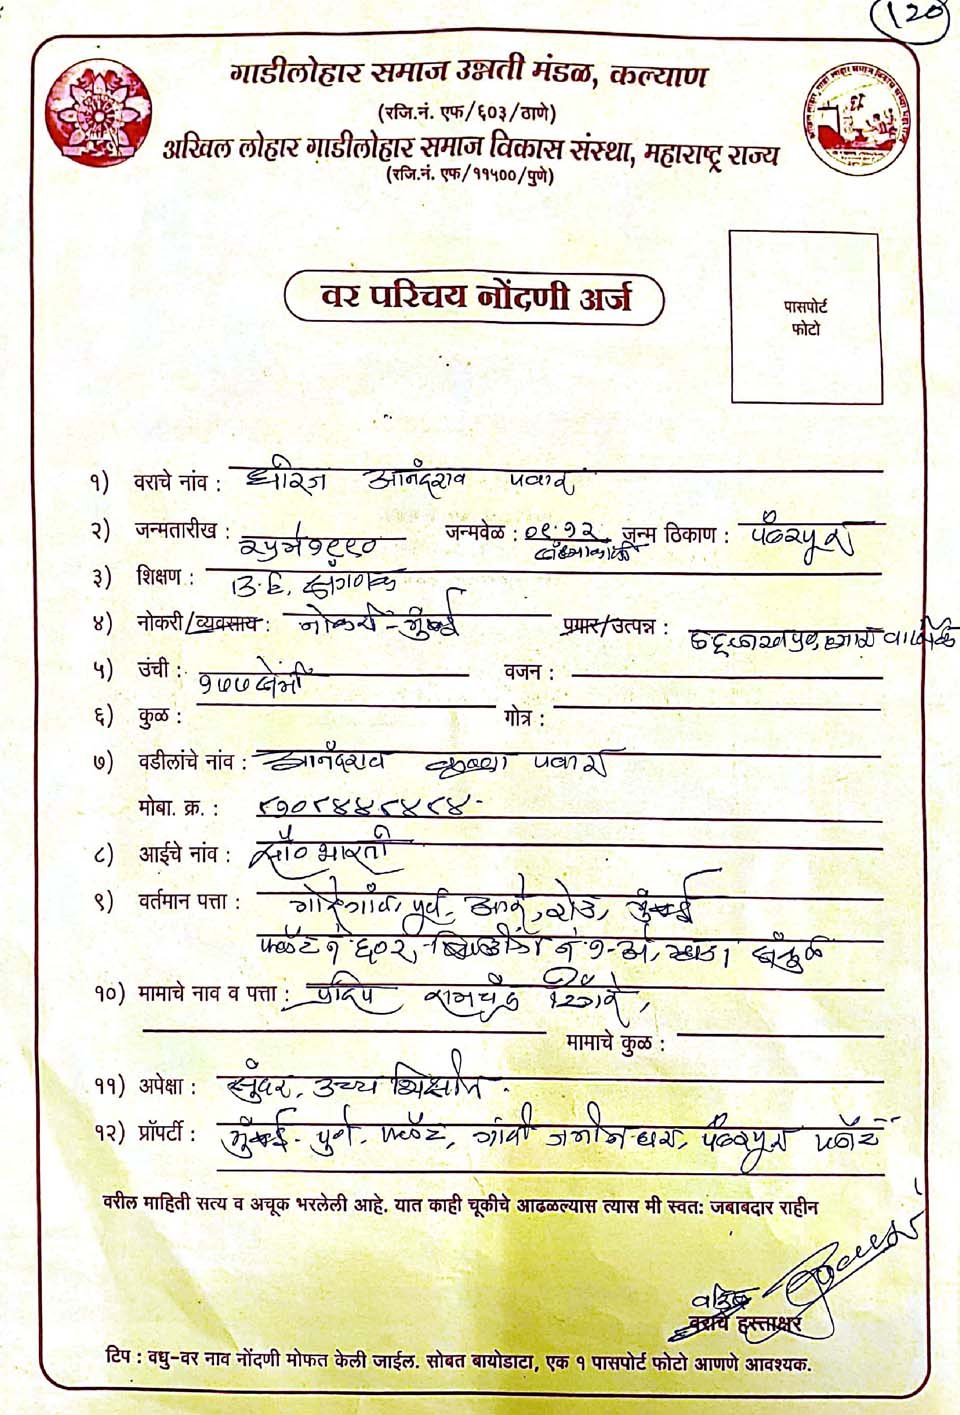 120
गाडीलोहार समाज उन्नती मंडळ, कल्याण
(रजि.नं. एफ/६०३/ठाणे)
अखिल लोहार गाडीलोहार समाज विकास संस्था, महाराष्ट्र राज्य
(रजि.नं. एफ/११५००/पुणे)
वर परिचय नोंदणी अर्ज
पासपोर्ट
फोटो
१) वराचे नांव : धीरज आनंदराव पवार
२) जन्मतारीख : २५ मे १९९० जन्मवेळ : ०९.१२ जन्म ठिकाण : पंढरपूर
३) शिक्षण : B.E. संगणक
४) नोकरी/व्यवसाय : नोकरी - मुंबई प्रगार/उत्पन्न :
५) उंची : १७७ सेंमी वजन :
६) कुळ : गोत्र :
७) वडीलांचे नांव : आनंदराव कृष्णा पवार
मोबा. क्र. : ८७०८४४८४८४
८) आईचे नांव : सौ० भारती
९) वर्तमान पत्ता : गोरेगांव, पूर्व, आरे, रोड, मुंबई
फ्लॅट नं ६०२, बिल्डींग नं १-अ, संकुल
१०) मामाचे नाव व पत्ता : प्रदिप रामचंद्र
मामाचे कुळ :
११) अपेक्षा : सुंदर, उच्च शिक्षीत.
१२) प्रॉपर्टी : मुंबई - पुणे, फ्लॅट, गांवी जमीन-घर, पंढरपूर प्लॉट
वरील माहिती सत्य व अचूक भरलेली आहे. यात काही चूकीचे आढळल्यास त्यास मी स्वत: जबाबदार राहीन
वडिल
वराचे हस्ताक्षर
टिप : वधु-वर नाव नोंदणी मोफत केली जाईल. सोबत बायोडाटा, एक १ पासपोर्ट फोटो आणणे आवश्यक.